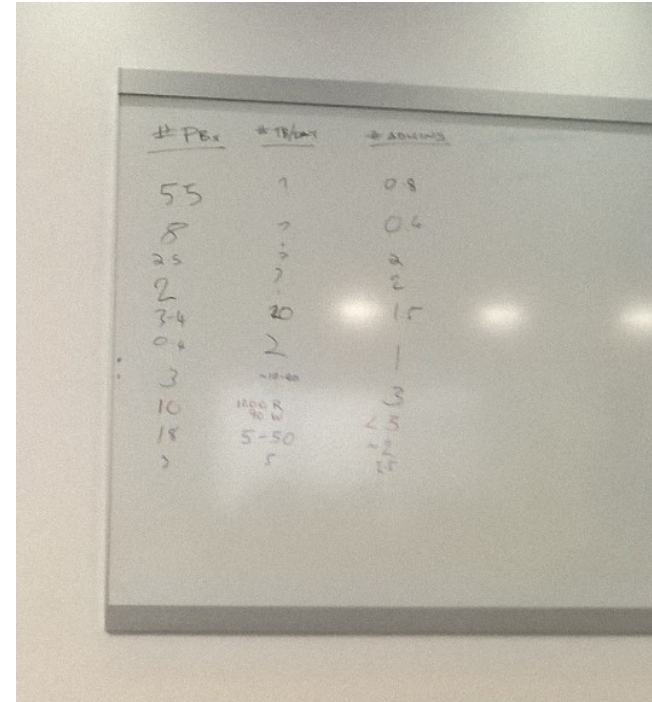 # PBs # TB/DAY # ADMINS
55 ? 0.8
8 ? 0.6
2.5 ? 2
2 ? 2
3-4 20 1.5
0.4 2 1
3 3
10 1200 R 90 W <3
18 5-50 ~2